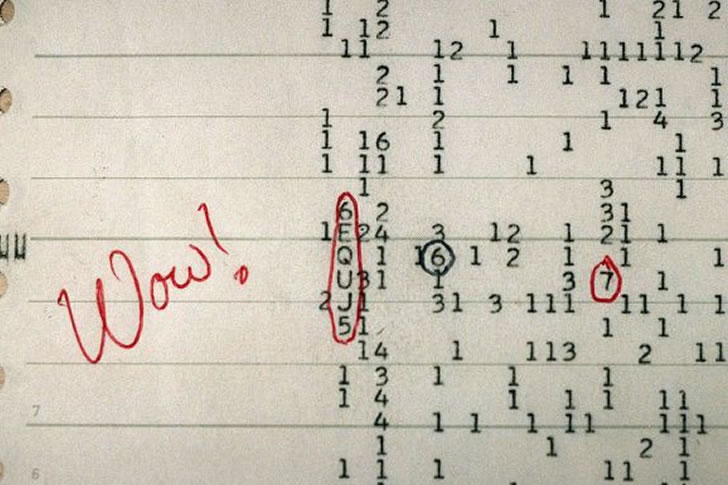 1 2 1 21 2
1 12 1 1
11 12 1 1111112
2 1 1 1 1 1
21 1 121 1
1 2 1 4 3
1 16 1 1 1
1 11 1 1 11 1
1 3 1
6 2 31
1E24 3 12 1 21 1
Q 1 16 1 2 1 1 1
U31 1 3 7 1
2 J1 31 3 111 11 1 1
51 1 1
Wow!
14 1 113 2 11
1 3 1 1 1
1 4 1 1 1 11
7
4 1 1 1 11 111
1 1 2 1
1 1 1 11 1
6